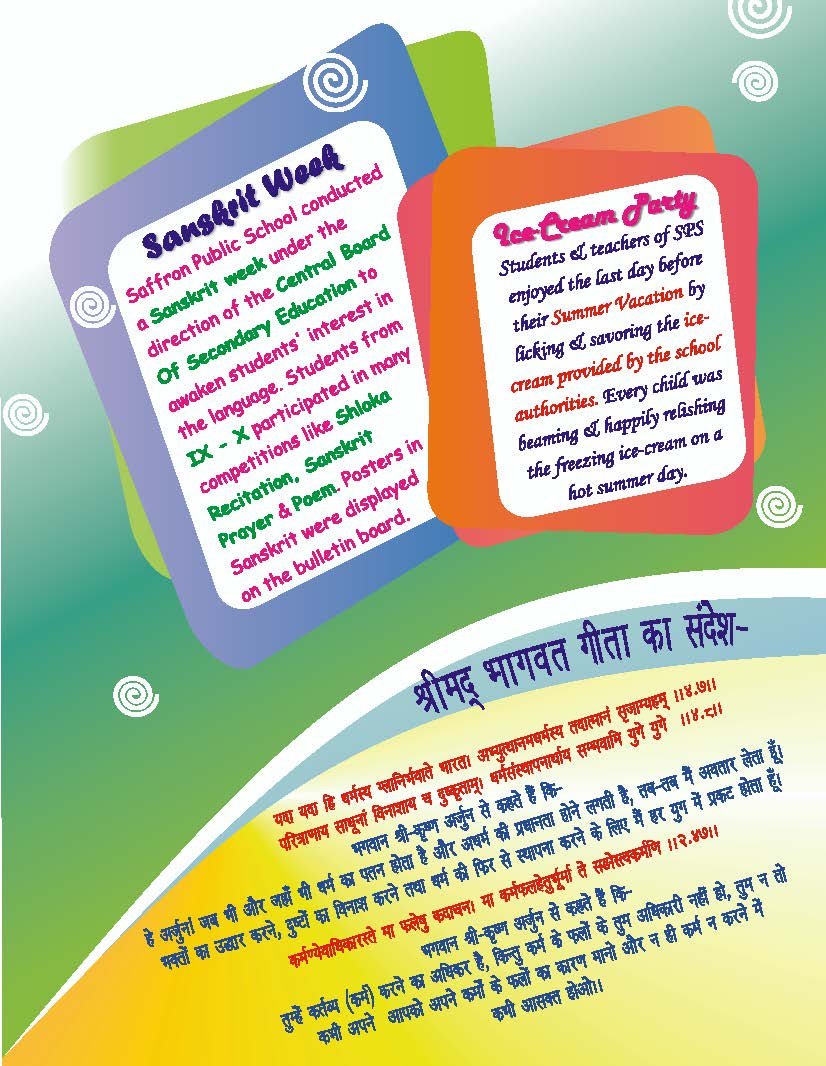 Sanskrit Week
Saffron Public School conducted
a Sanskrit week under the
direction of the Central Board
Of Secondary Education to
awaken students' interest in
the language. Students from
IX - X participated in many
competitions like Shloka
Recitation, Sanskrit
Prayer & Poem. Posters in
Sanskrit were displayed
on the bulletin board.
Ice-Cream Party
Students & teachers of SPS
enjoyed the last day before
their Summer Vacation by
licking & savoring the ice-
cream provided by the school
authorities. Every child was
beaming & happily relishing
the freezing ice-cream on a
hot summer day.
श्रीमद् भागवत गीता का संदेश-
यदा यदा हि धर्मस्य ग्लानिर्भवाले भारत। अभ्युत्थानमधर्मस्य तदात्मानं सृजाम्यहम् ।।४.७।।
परित्राणाय साधूनां विनाशाय च दुष्कृताम्। धर्मसंस्थापनार्थाय सम्भवामि युगे युगे ।।४.८।।
भगवान श्री-कृष्ण अर्जुन से कहते हैं कि-
हे अर्जुनां जब भी और जहाँ भी धर्म का पतन होता है और अधर्म की प्रधानता होने लगती है, तब-तब मैं अवतार लेता हूँ।
भक्तों का उद्धार करने, दुष्टों का विनाश करने तथा धर्म की फिर से स्थापना करने के लिए मैं हर युग में प्रकट होता हूँ।
कर्मण्येवाधिकारस्ते मा फलेषु कदाचन। मा कर्मफलहेतुर्भूर्मा ते सङोस्त्वकर्मणि ।।२.४७।।
भगवान श्री-कृष्ण अर्जुन से कहते हैं कि-
तुम्हें कर्तव्य (कर्म) करने का अधिकर है, किन्तु कर्म के फलों के तुम अधिकारी नहीं हो, तुम न तो
कभी अपने आपको अपने कर्मों के फलों का कारण मानो और न ही कर्म न करने में
कभी आसक्त होओ।।